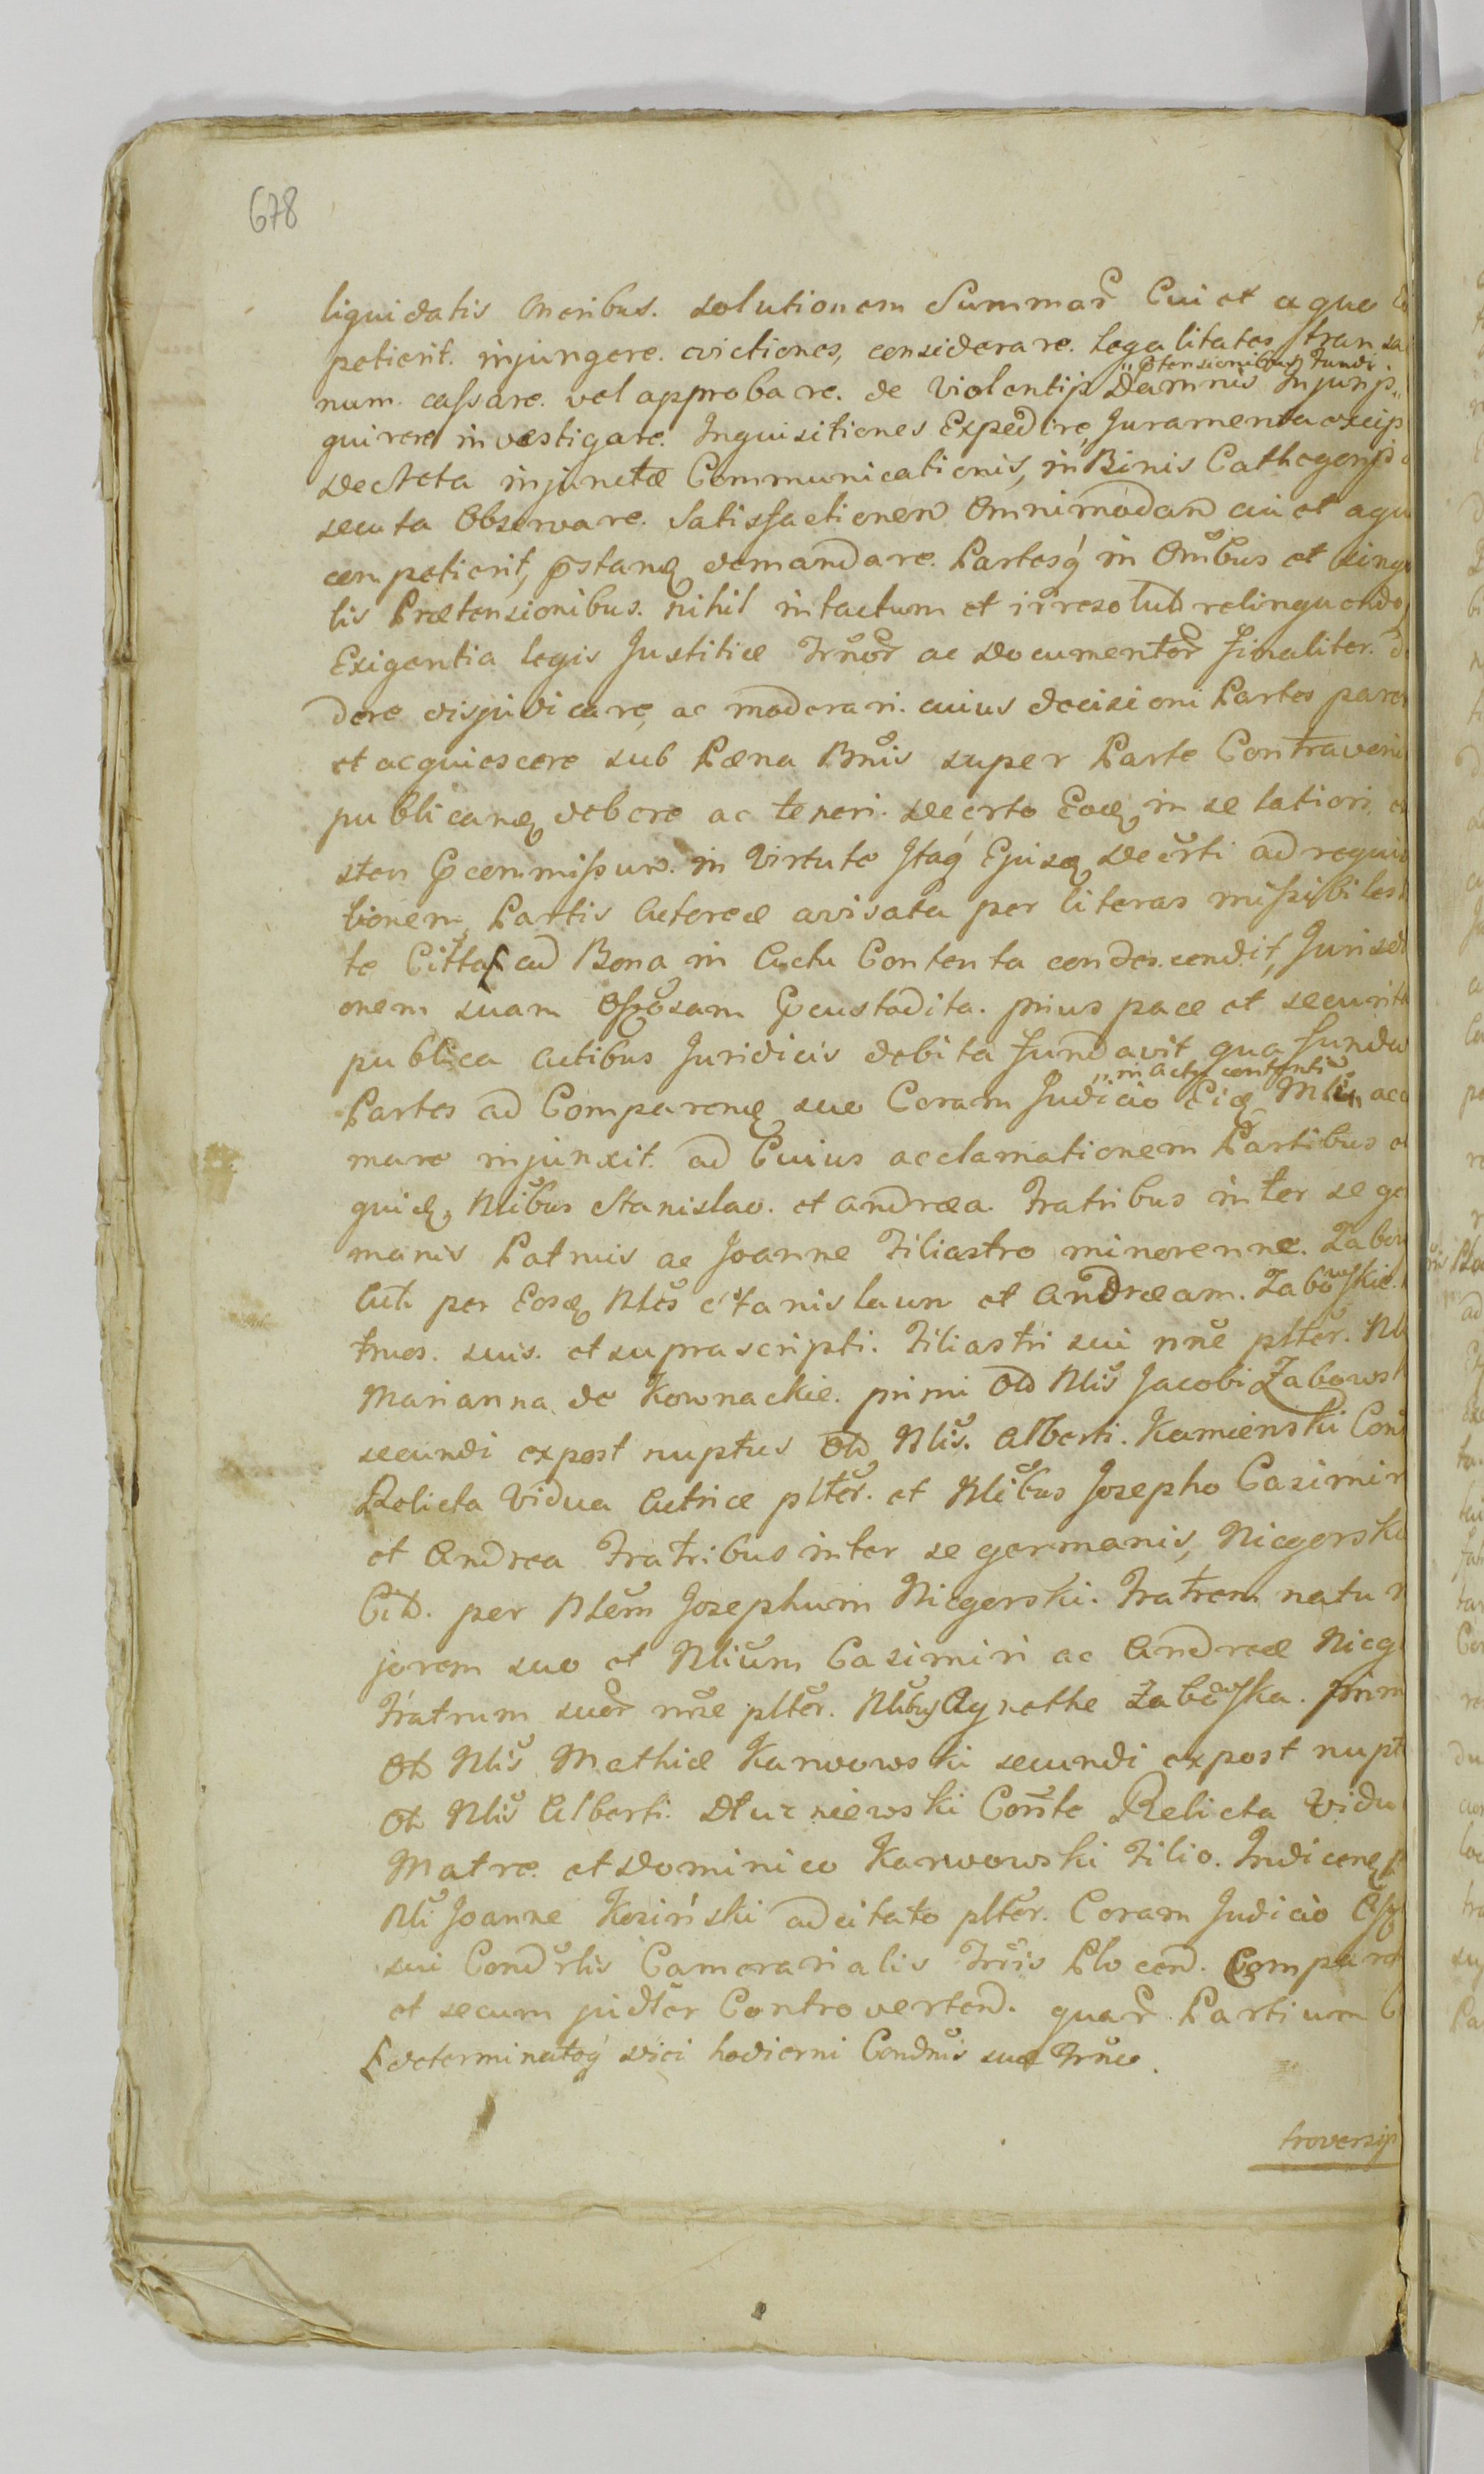 678
liquidatis Oneribus. solutionem Summar Cui et a quo
petierit. injungere. evictiones, considerare. Legalitates transa
p̃tensionibus Fundi
num. cassare. vel approbare. de Violentijs Damnis Injurijs
quirere investigare. Inquisitiones Expedire, Juramenta excip
decreta injunctæ Communicationis, in Binis Cathegorijs
secuta Observare. Satisfactionem Omnimodam cui et aqu
competierit, p̃stanđ demandare. Partesq́ in Om̃bus et singu
lis Prætensionibus. nihil intactum et irresolut̃ relinquendo,
Exigentia legis Justitiæ Trũor ac Documentor finaliter. d
dere disjudicare, ac moderari. cuius decisioni Partes parer
et acquiescere sub Pæna Bñis super Parte Contraveni
publicanđ debere ac teneri. decreto Eođ in se latiori
sten p̃commissum. in Virtute Itaq́ Ejusđ Decr̃ti ad requisi
tionem Partis Actoreæ avisata per literas missibiles
te Citta ad Bona in Actu Contenta condescendit, Jurisd
onem suam Off̃osam p̃custodita. prius pace et securit
publica Actibus Juridicis debita fundavit qua funda
in actu contenti
Partes ad Comparenđ suo Coram Judicio Eiđ Mlũ acc
mare injunxit. ad Cuius acclamationem Partibus
quiđ, Nlibus Stanislao. et Andrea. Fratribus inter se ge
manis Patruis ac Joanne Filiastro minorenne. Zabow
Act. per Eosđ Nlẽs Stanislaum et Andream. Zabowskie.
truos. suis. et suprascripti. Filiastri sui nñe pltẽr. Nl
Marianna de Kownackie. primi Olt̃ Nlis̃ Jacobi Zabows
secundi expost nuptus Olt̃ Nlis̃. Alberti. Kamienski Con
Relicta Vidua Actrice pltẽr. et Nlibus Josepho Casimir
et Andrea Fratribus inter se germanis, Niegorski
Citt̃. per Nlẽm Josephum Niegorski. Fratrem natu
jorem suo et Nliũm Casimiri ac Andreæ Nieg
Fratrum suor nñe pltẽr. Nlibus Agnethe Zabowska. prim
Olt̃ Nlis̃ Mathiæ Karwowski secundi expost nupt
Olt̃ Nlis̃ Alberti. Dłuzniewski Con̄te Relicta Vidu
Matre. et Dominico Karwowski Filio. Indicenđ
Nli Joanne Kosiński adcitato pltẽr. Coram Judicio
sui Condrlis Camerarialis Trr̃is Plocen. Compar
et secum judt̃er Controvertend. quar Partium
determinatoq́ Diei hodierni Condñis suæ Trũo.
troversijs